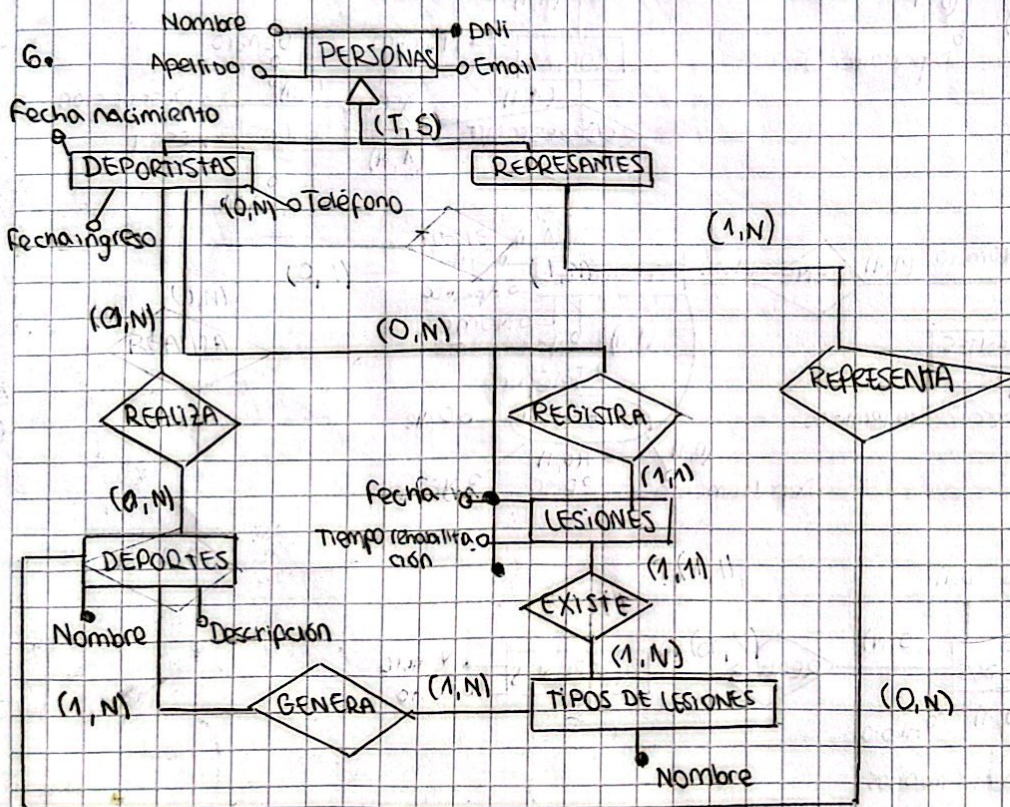 6.
Nombre
DNi
PERSONAS
Apellido
Email
(T, S)
Fecha nacimiento
DEPORTISTAS
REPRESANTES
(0,N)
Teléfono
Fecha ingreso
(1,N)
(0,N)
(0,N)
REALIZA
REGISTRA
REPRESENTA
(0,N)
(1,1)
Fecha
LESIONES
Tiempo rehabilita
ción
DEPORTES
(1,1)
EXISTE
Nombre
Descripción
(1,N)
(1,N)
GENERA
(1,N)
TIPOS DE LESIONES
(0,N)
Nombre